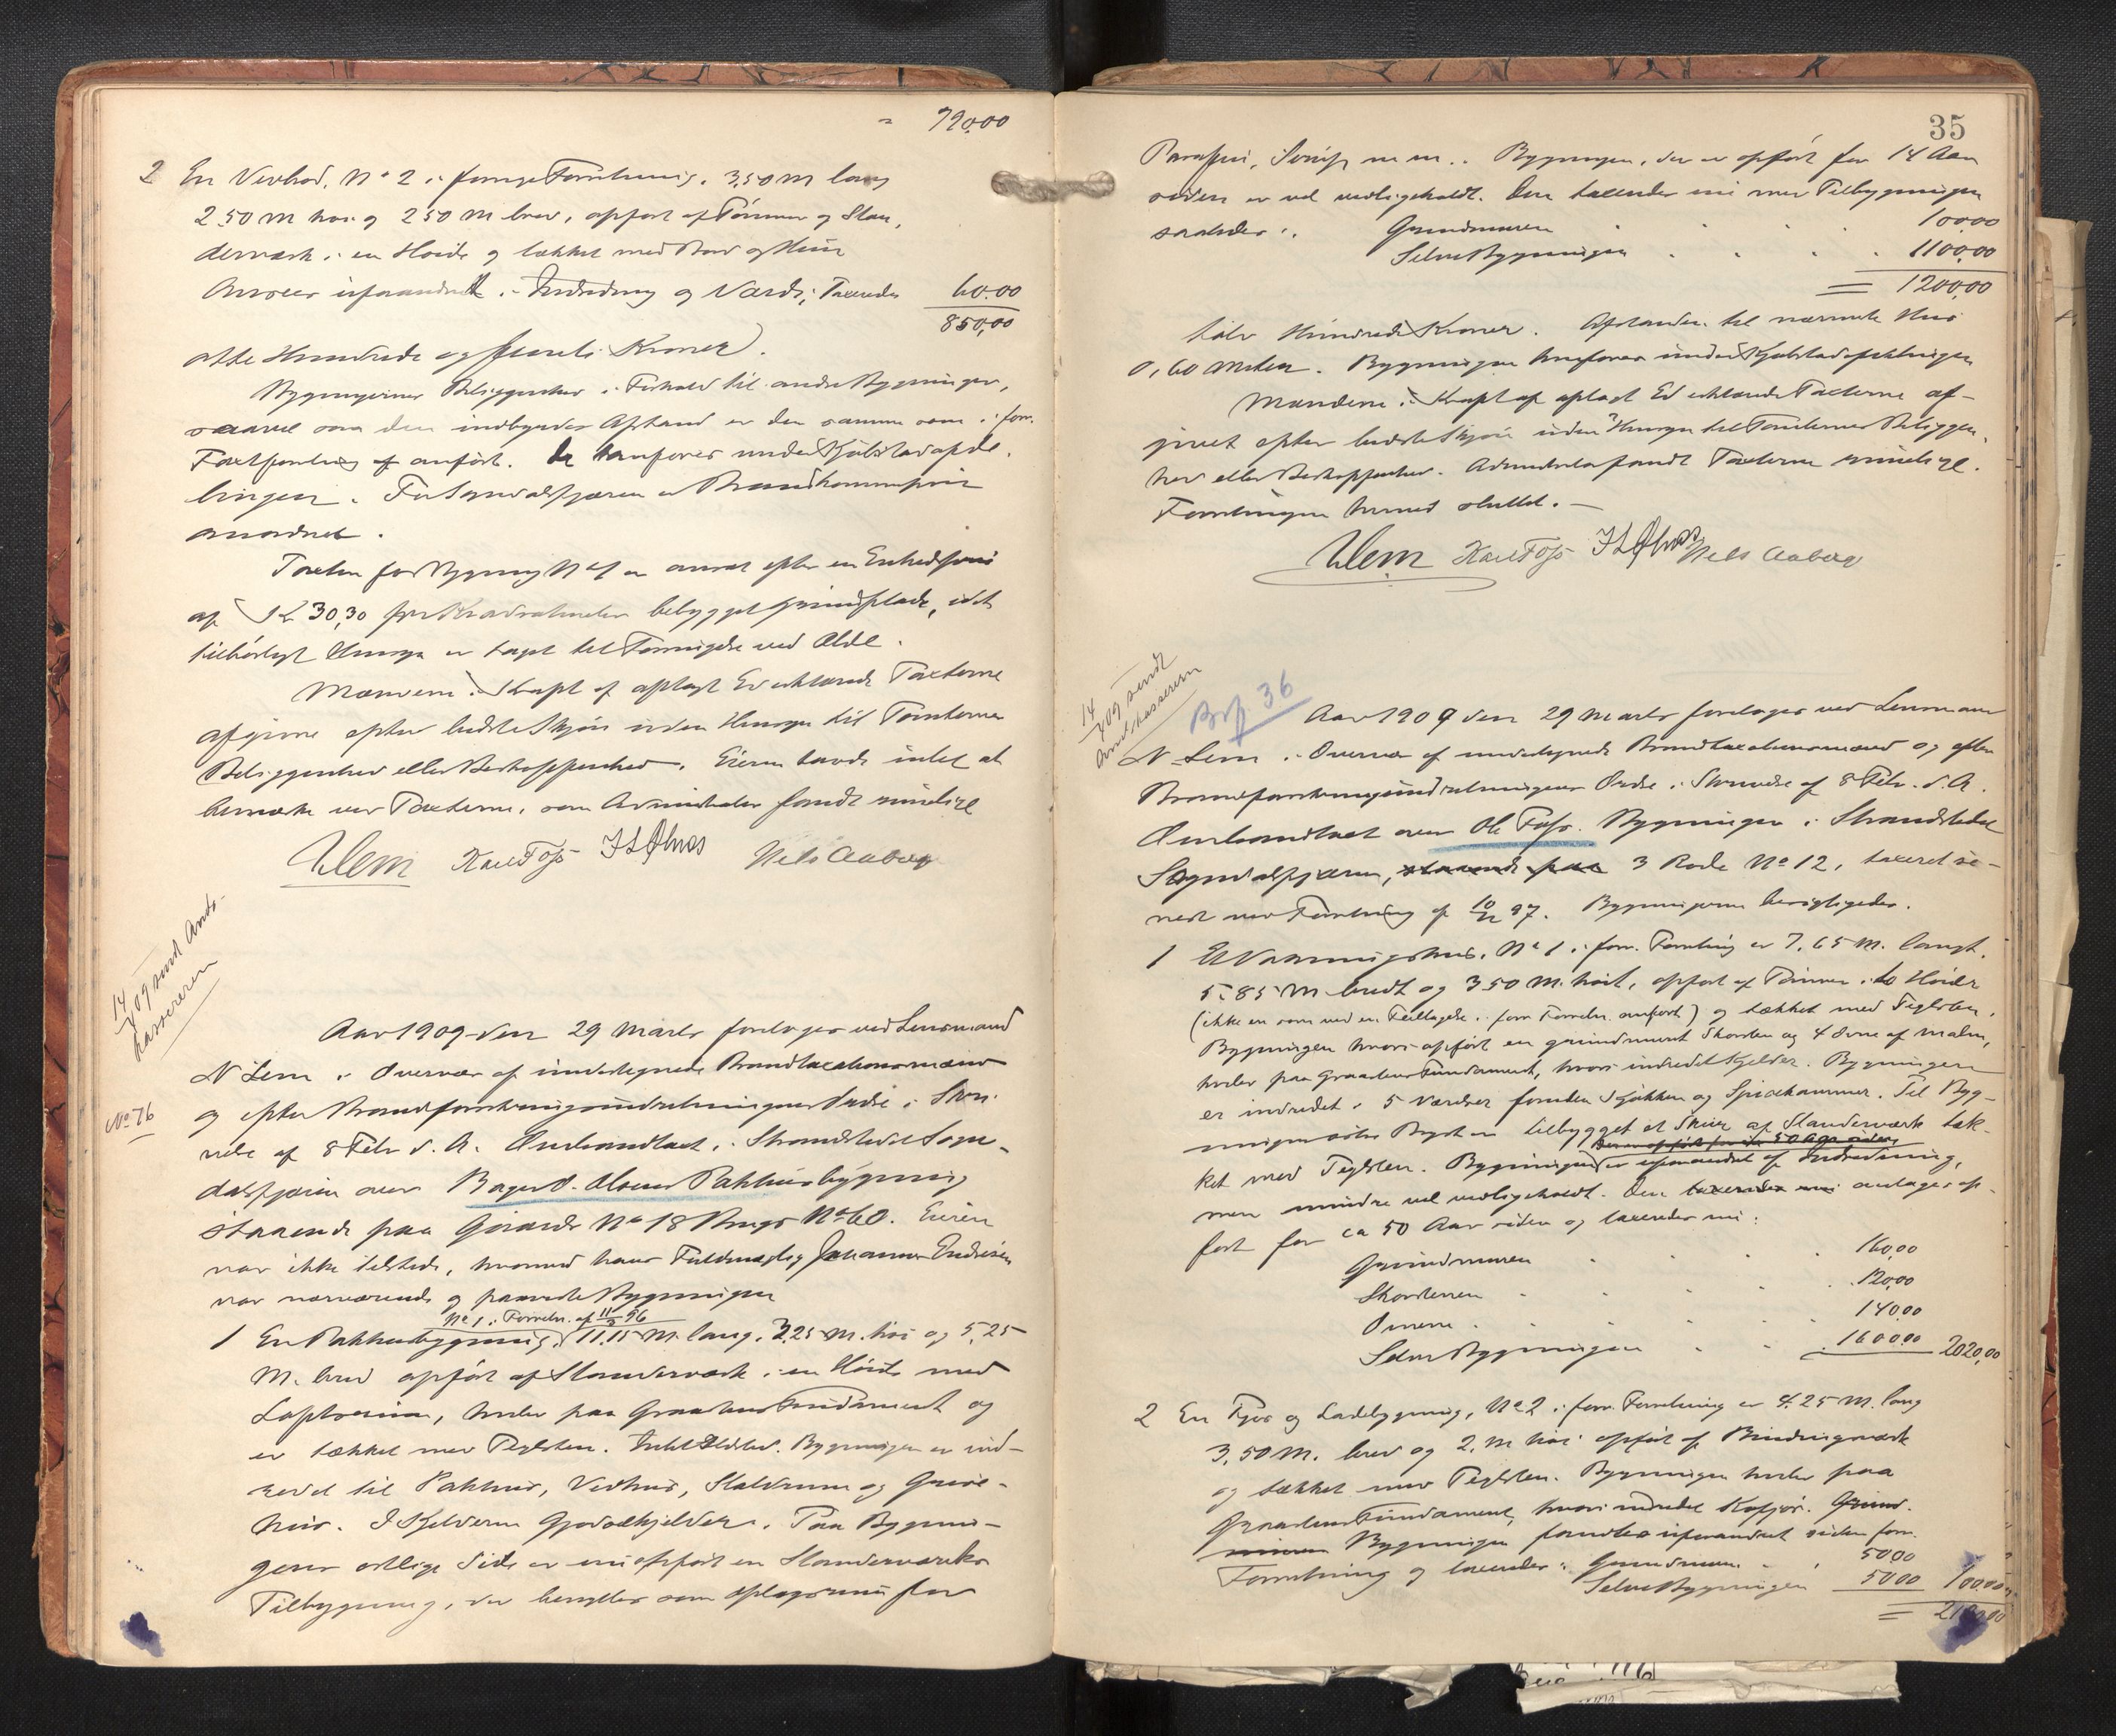 = 790,00
2 En Vedbod, No 2 i forrige Forretning, 3,50 M lang
2,50 M høi og 2,50 M bred, opført af Tømmer og Stan-
derværk i en Høide og tækket med Bord og
Ansees uforandret i Indredning og Værdi; Taxeredes 60,00
850,00
otte Hundrede og femti Kroner.
Bygningernes Beliggenhed i Forhold til andre Bygninger,
saavel som den indbyrdes Afstand er den samme som i forr.
Taxtforretning af anført. De henføres under Kjøbstadafde-
lingen. For Sogndalsfjæren er Brandkommission
anordnet.
Taxten for Bygning No 1 er ansat efter en Enhedspris
af Kr 30,30 pr Kvadratmeter bebygget Grundflade, idet
tilbørligt Hensyn er taget til Forringelse ved Ælde.
Mændene i Kraft af aflagt Ed erklærede Taxterne
afgivne efter bedste Skjøn uden Hensyn til Tomternes
Beliggenhed eller Beskaffenhed. Eieren havde intet at
bemærke ved Taxterne, som Administrator fandt rimelige
NLem Karl Foss Nils Aaberg
14/4 09 sendt Amts-
kassereren
Aar 1909 den 29 Marts foretoges ved Lensmand
N Lem i Overvær af undertegnede Brandtaxationsmænd
No 76
og efter Brandforsikringsindretningens Ordre i Skri-
velse af 8 Febr d. A. Omhandtaxt i Strandstedet Sogn-
dalsfjæren over Bager O. Olsens Pakhusbygning
staaende paa Gaards No 18 Brugs No 60. Eieren
var ikke tilstede, hvorimod hans Fuldmægtig Johannes Endresen
var nærværende og paaviste Bygningen
No 1 i Forretn. af 11/5 96
1 En Pakhusbygning, 11,15 M. lang, 3,25 M. høi og 5,25
M. bred opført af Standerværk i en Høide med
Loftsrum, hviler paa Graastens Fundament og
er tækket med Teglsten. Intet Ildsted. Bygningen er ind-
redet til Pakhus, Vedhus, Staldrum og Grise-
hus. I Kjelderen Gjødselkjelder. Paa Bygnin-
gens østlige Side er nu opført en Standerværks
Tilbygning, der benyttes som Oplagsrum for
35
Parafin, Sirup m m.. Bygningen, der er opført for 14 Aar
siden er vel vedligeholdt. Den taxeredes nu med Tilbygningen
saaledes: Grundmuren 100,00
Selve Bygningen 1100,00
= 1200,00
tolv Hundrede Kroner. Afstanden til nærmeste Hus
0,60 Meter. Bygningen henføres under Kjøbstadafdelingen
Mændene i Kraft af aflagt Ed erklærede Taxterne af-
givet efter bedste Skjøn uden Hensyn til Tomternes Beliggen-
hed eller Beskaffenhed. Administrator fandt Taxterne rimelige.
Forretningen hermed sluttet. —
NLem Karl Foss Nils Aaberg
14/4 09 sendt
Amtskassereren
36
Aar 1909 den 29 Marts foretoges ved Lensmand
N Lem i Overvær af undertegnede Brandtaxationsmænd og efter
Brandforsikringsindretningens Ordre i Skrivelse af 8 Febr. d. A.
Omhandtaxt over Ole Foss. Bygninger i Strandstedet
Sogndalsfjæren, staaende paa 3 Rode No 12, taxeret se-
nest ved Forretning af 10/12 97. Bygningerne besigtigedes.
1 Et Vaaningshus, No 1 i forr. Forretning er 7,65 M. langt,
5,85 M bredt og 3,50 M. høit, opført af Tømmer i to Høider
(ikke en som ved en Feiltagelse i forr Forretn. anført) og tækket med Teglsten,
Bygningen hvori opført en grundmuret Skorsten og 4 Ovne af Malm,
hviler paa Graastens Fundament, hvori indredet Kjelder. Bygningen
er indredet i 5 Værelser foruden Kjøkken og Spisekammer. Til Byg-
ningens Bagside er tilbygget et Skur af Standerværk tæk-
Den er opført for ca 50 Aar siden,
ket med Teglsten. Bygningen er uforandret af Indredning,
men mindre vel vedligeholdt. Den taxeredes nu antages op-
ført for ca 50 Aar siden og taxeredes nu:
Grundmuren 160,00
Skorstenen 120,00
Ovnene 140,00
Selve Bygningen 1600,00 2020,00
2 En Fjøs og Ladebygning, No 2 i forr. Forretning er 4,25 M. lang
3,50 M. bred og 2, M høi opført af Bindingsværk
og tækket med Teglsten. Bygningen hviler paa
Graastens Fundament, hvori indredet Kofjøs. Grund-
muren Bygningen fandtes uforandret siden forr.
Forretning og taxeredes: Grundmuren 50,00
Selve Bygningen 50,00 100,00
=